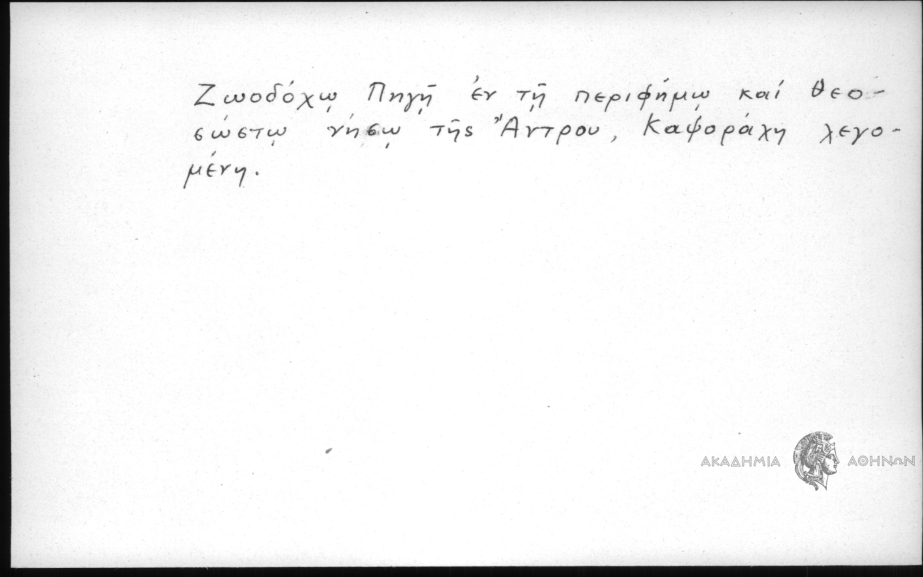 Ζωοδόχῳ Πηγῇ ἐν τῇ περιφήμῳ καί θεο-
σώστῳ νήσῳ τῆς Ἄντρου, Καψοράχη λεγο-
μένη.
ΑΚΑΔΗΜΙΑ ΑΘΗΝΩΝ